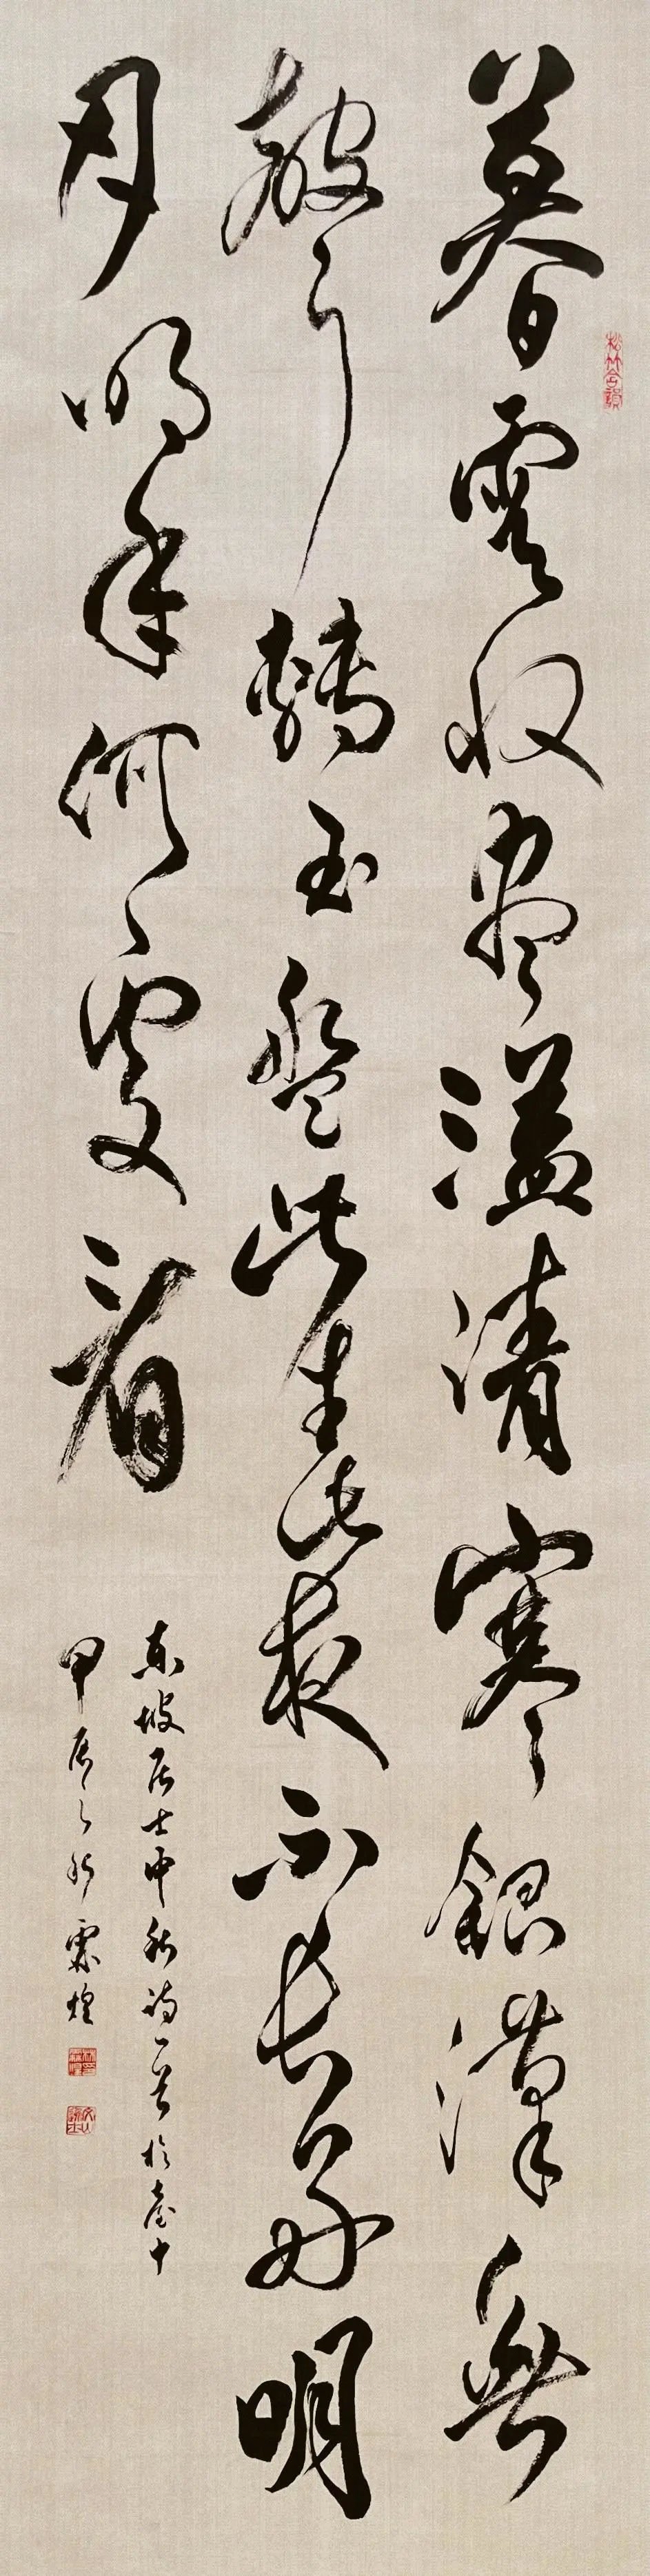 暮雲收盡溢清寒銀漢無
聲轉玉盤此生此夜不長好明
月明年何處看
東坡居士中秋詩一首於臺
甲辰之秋霖煌